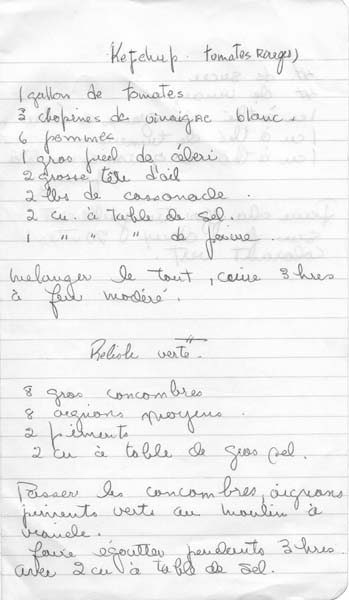 Ketchup. tomates rouges)
1 gallon de tomates
3 chopines de vinaigre blanc.
6 pommes
1 gros pied de céleri
2 grosse tête d'ail
2 lbs de cassonade.
2 cu. à table de sel.
1 " " " de poivre.
Mélanger le tout, cuire 3 hres
à feu modéré.
Relish verte.
8 gros concombres
8 oignons moyens.
2 piments
2 cu à table de gros sel.
Passer les concombres, oignons
piments verts au moulin à
viande.
Faire égoutter pendants 3 hres.
avec 2 cu à table de sel.